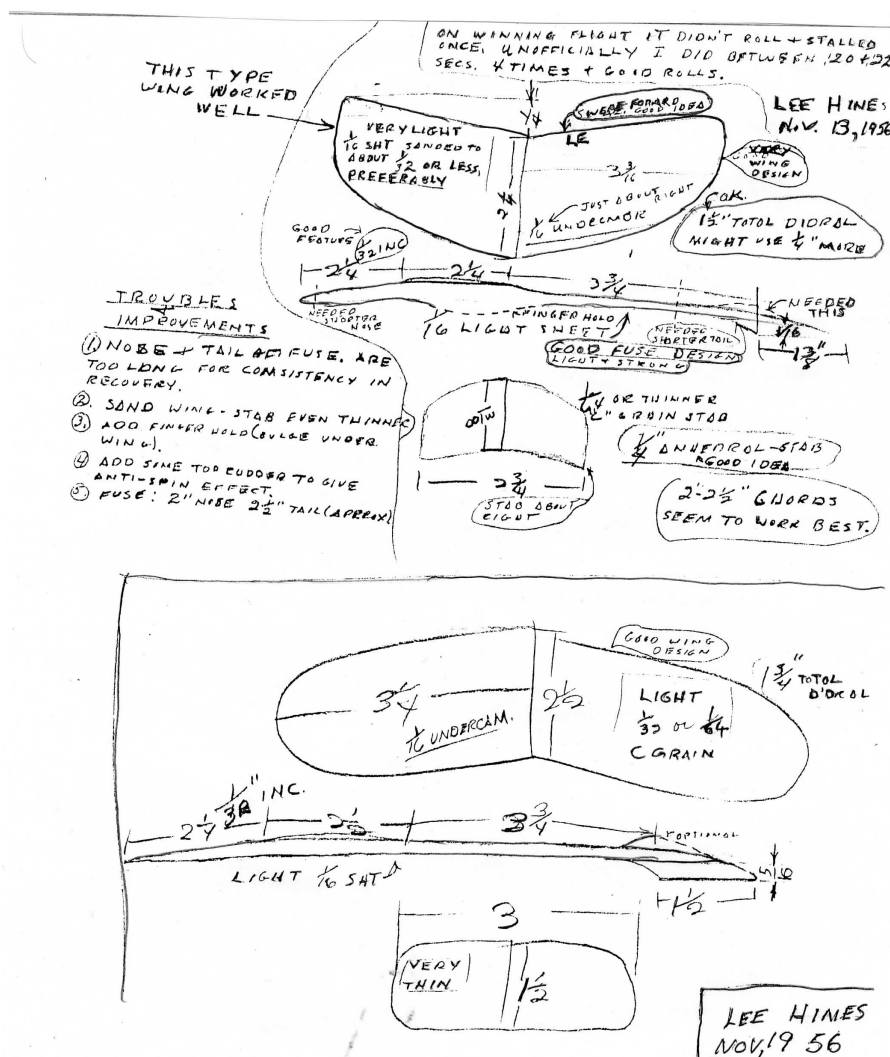 ON WINNING FLIGHT IT DIDN'T ROLL + STALLED
ONCE, UNOFFICIALLY I DID BETWEEN 20 + 22
SECS. 4 TIMES + GOOD ROLLS.
THIS TYPE
WING WORKED
WELL
LEE HINES
NOV. 13, 1956
SWEEP FORWARD
GOOD IDEA
LE
VERY LIGHT
1/16 SHT SANDED TO
ABOUT 1/32 OR LESS,
PREFERABLY
3 3/16
2 1/4
JUST ABOUT RIGHT
1/16 UNDERCMBR
WING
DESIGN
OK.
1 1/2" TOTAL DIDRAL
MIGHT USE 1/4" MORE
GOOD
FEATURE
1/32 INC
2 1/4
2 1/4
3 3/4
NEEDED
SHORTER
NOSE
FINGER HOLD
1/16 LIGHT SHEET
GOOD FUSE DESIGN
LIGHT & STRONG
NEEDED
SHORTER TAIL
NEEDED
THIS
1 3/8"
TROUBLES
+
IMPROVEMENTS
① NOSE + TAIL OF FUSE. ARE
TOO LONG FOR CONSISTENCY IN
RECOVERY.
②. SAND WING - STAB EVEN THINNER
③. ADD FINGER HOLD (BULGE UNDER
WING).
④ ADD SOME TOO RUDDER TO GIVE
ANTI-SPIN EFFECT.
⑤ FUSE: 2" NOSE 2 1/2" TAIL (APPROX)
OR THINNER
GRAIN STAB
2 3/4
STAB ABOUT
RIGHT
1/4" ANHEDROL - STAB
GOOD IDEA
2"-2 1/2" CHORDS
SEEM TO WORK BEST.
GOOD WING
DESIGN
1 3/4" TOTOL
D'DRAL
3 1/4
1/16 UNDERCAM.
2 1/2
LIGHT
1/32 or 1/64
C GRAIN
1/32" INC.
2 1/4
2 1/2
3 3/4
OPTIONAL
LIGHT 1/16 SHT
1 1/2
3
VERY
THIN
1 1/2
LEE HINES
NOV, 1956